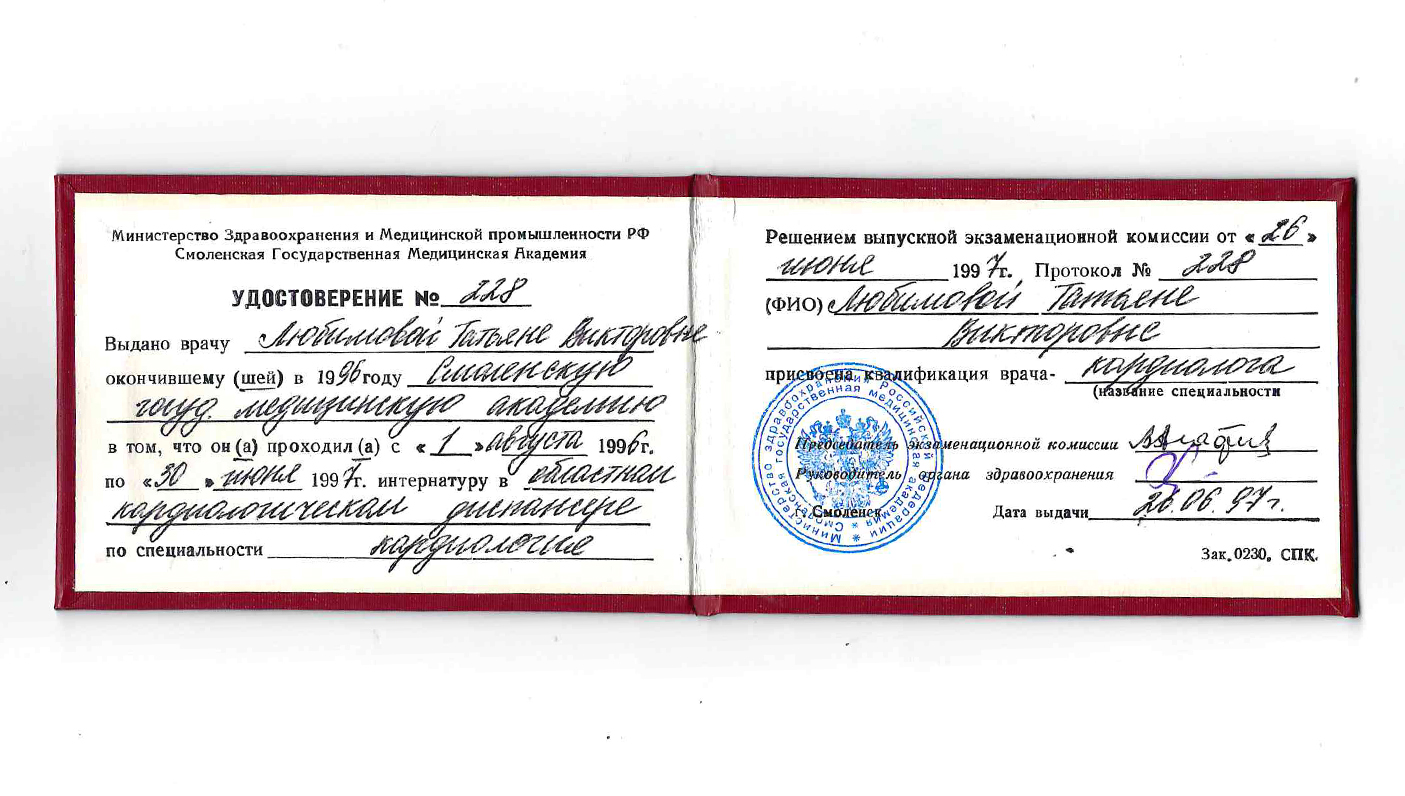 Министерство Здравоохранения и Медицинской промышленности РФ
Смоленская Государственная Медицинская Академия
УДОСТОВЕРЕНИЕ № 228
Выдано врачу Любимовой Татьяне Викторовне
окончившему (шей) в 1996 году Смоленскую
госуд. медицинскую академию
в том, что он (а) проходил (а) с «1» августа 1996г.
по «30» июня 1997г. интернатуру в областном
кардиологическом диспансере
по специальности кардиология
Решением выпускной экзаменационной комиссии от «26»
июня 1997г. Протокол № 228
(ФИО) Любимовой Татьяне
Викторовне
присвоена квалификация врача- кардиолога
(название специальности
Председатель экзаменационной комиссии
Руководитель органа здравоохранения
г. Смоленск Дата выдачи 26.06.97г.
Зак. 0230. СПК.
Министерство здравоохранения Российской Федерации
Смоленская государственная медицинская академия